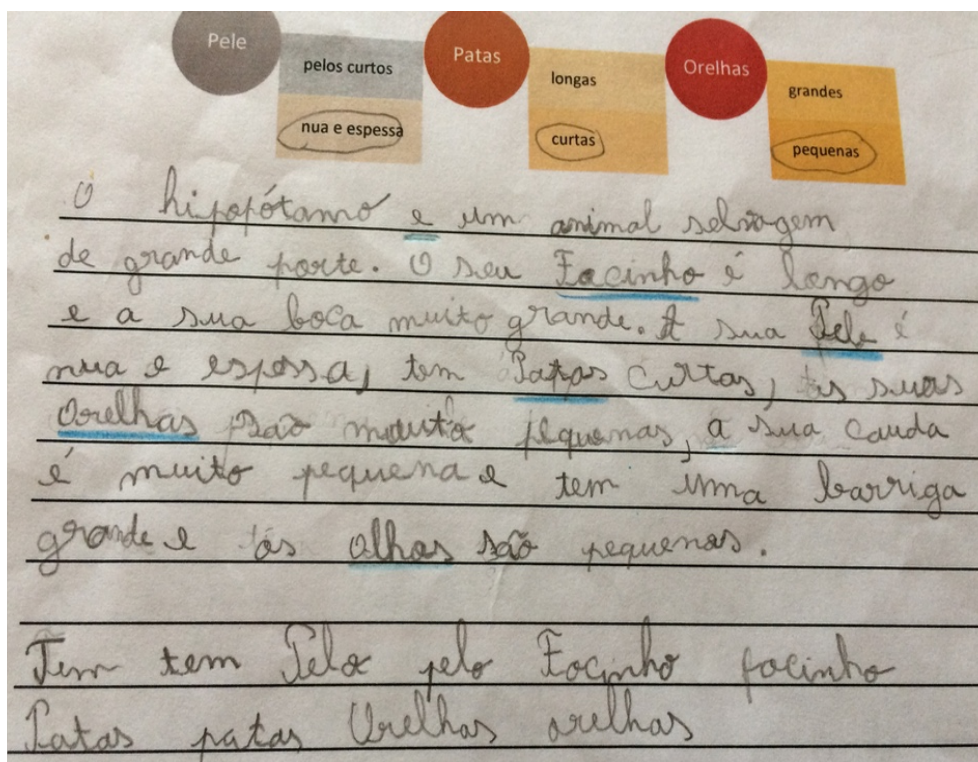 Pele
Patas
Orelhas
pelos curtos
longas
grandes
nua e espessa
curtas
pequenas
O hipopótamo e um animal selvagem
de grande porte. O seu Focinho é longo
e a sua boca muito grande. A sua Pele é
nua e espessa, tem Patas curtas, as suas
Orelhas são muito pequenas, a sua cauda
é muito pequena e tem uma barriga
grande e os olhos são pequenos.
Tem tem Pelo pelo Focinho focinho
Patas patas Orelhas orelhas